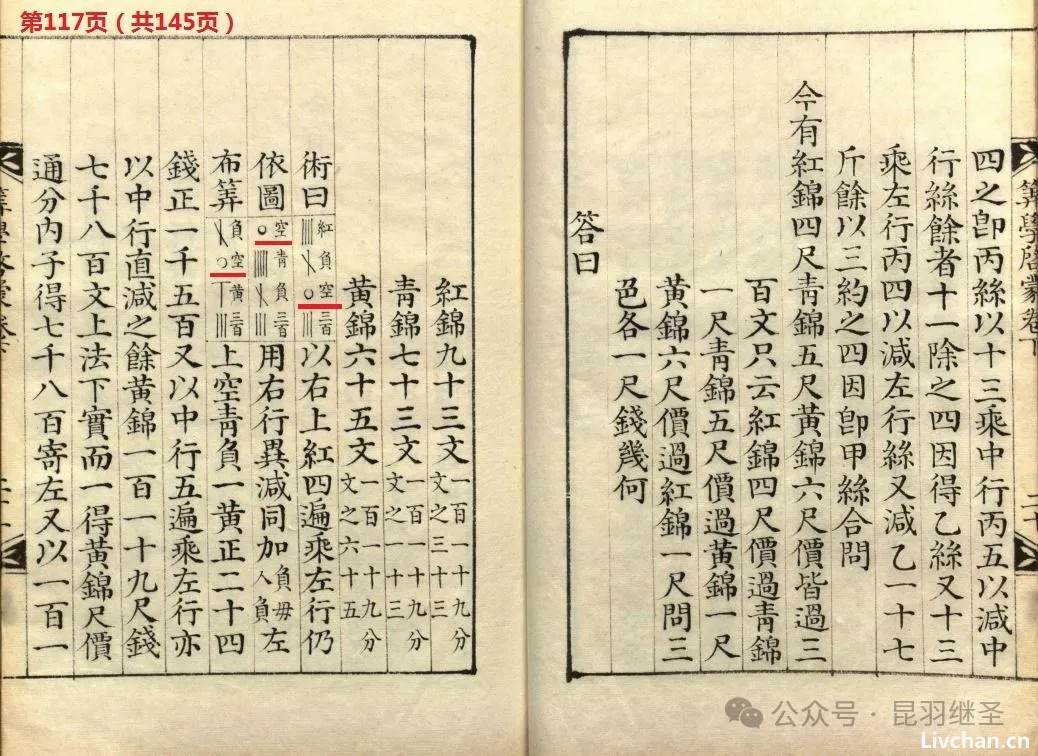 第117页（共145页）
筭學啓蒙卷下
四之卽丙絲以十三乘中行丙五以減中
行絲餘者十一除之四因得乙絲又十三
乘左行丙四以減左行絲又減乙一十七
斤餘以三約之四因卽甲絲合問
今有紅錦四尺靑錦五尺黃錦六尺價皆過三
百文只云紅錦四尺價過靑錦
一尺靑錦五尺價過黃錦一尺
黃錦六尺價過紅錦一尺問三
色各一尺錢幾何
答曰
紅錦九十三文一百一十九分文之三十三
靑錦七十三文一百一十九分文之一十三
黃錦六十五文一百一十九分文之六十五
術曰紅負空三百以右上紅四遍乘左行仍
依圖空靑負三百用右行異減同加負毋人負左
布筭負空黃三百上空靑負一黃正二十四
錢正一千五百又以中行五遍乘左行亦
以中行直減之餘黃錦一百一十九尺錢
七千八百文上法下實而一得黃錦尺價
通分內子得七千八百寄左又以一百一
公众号·昆羽继圣
Livchan.cn